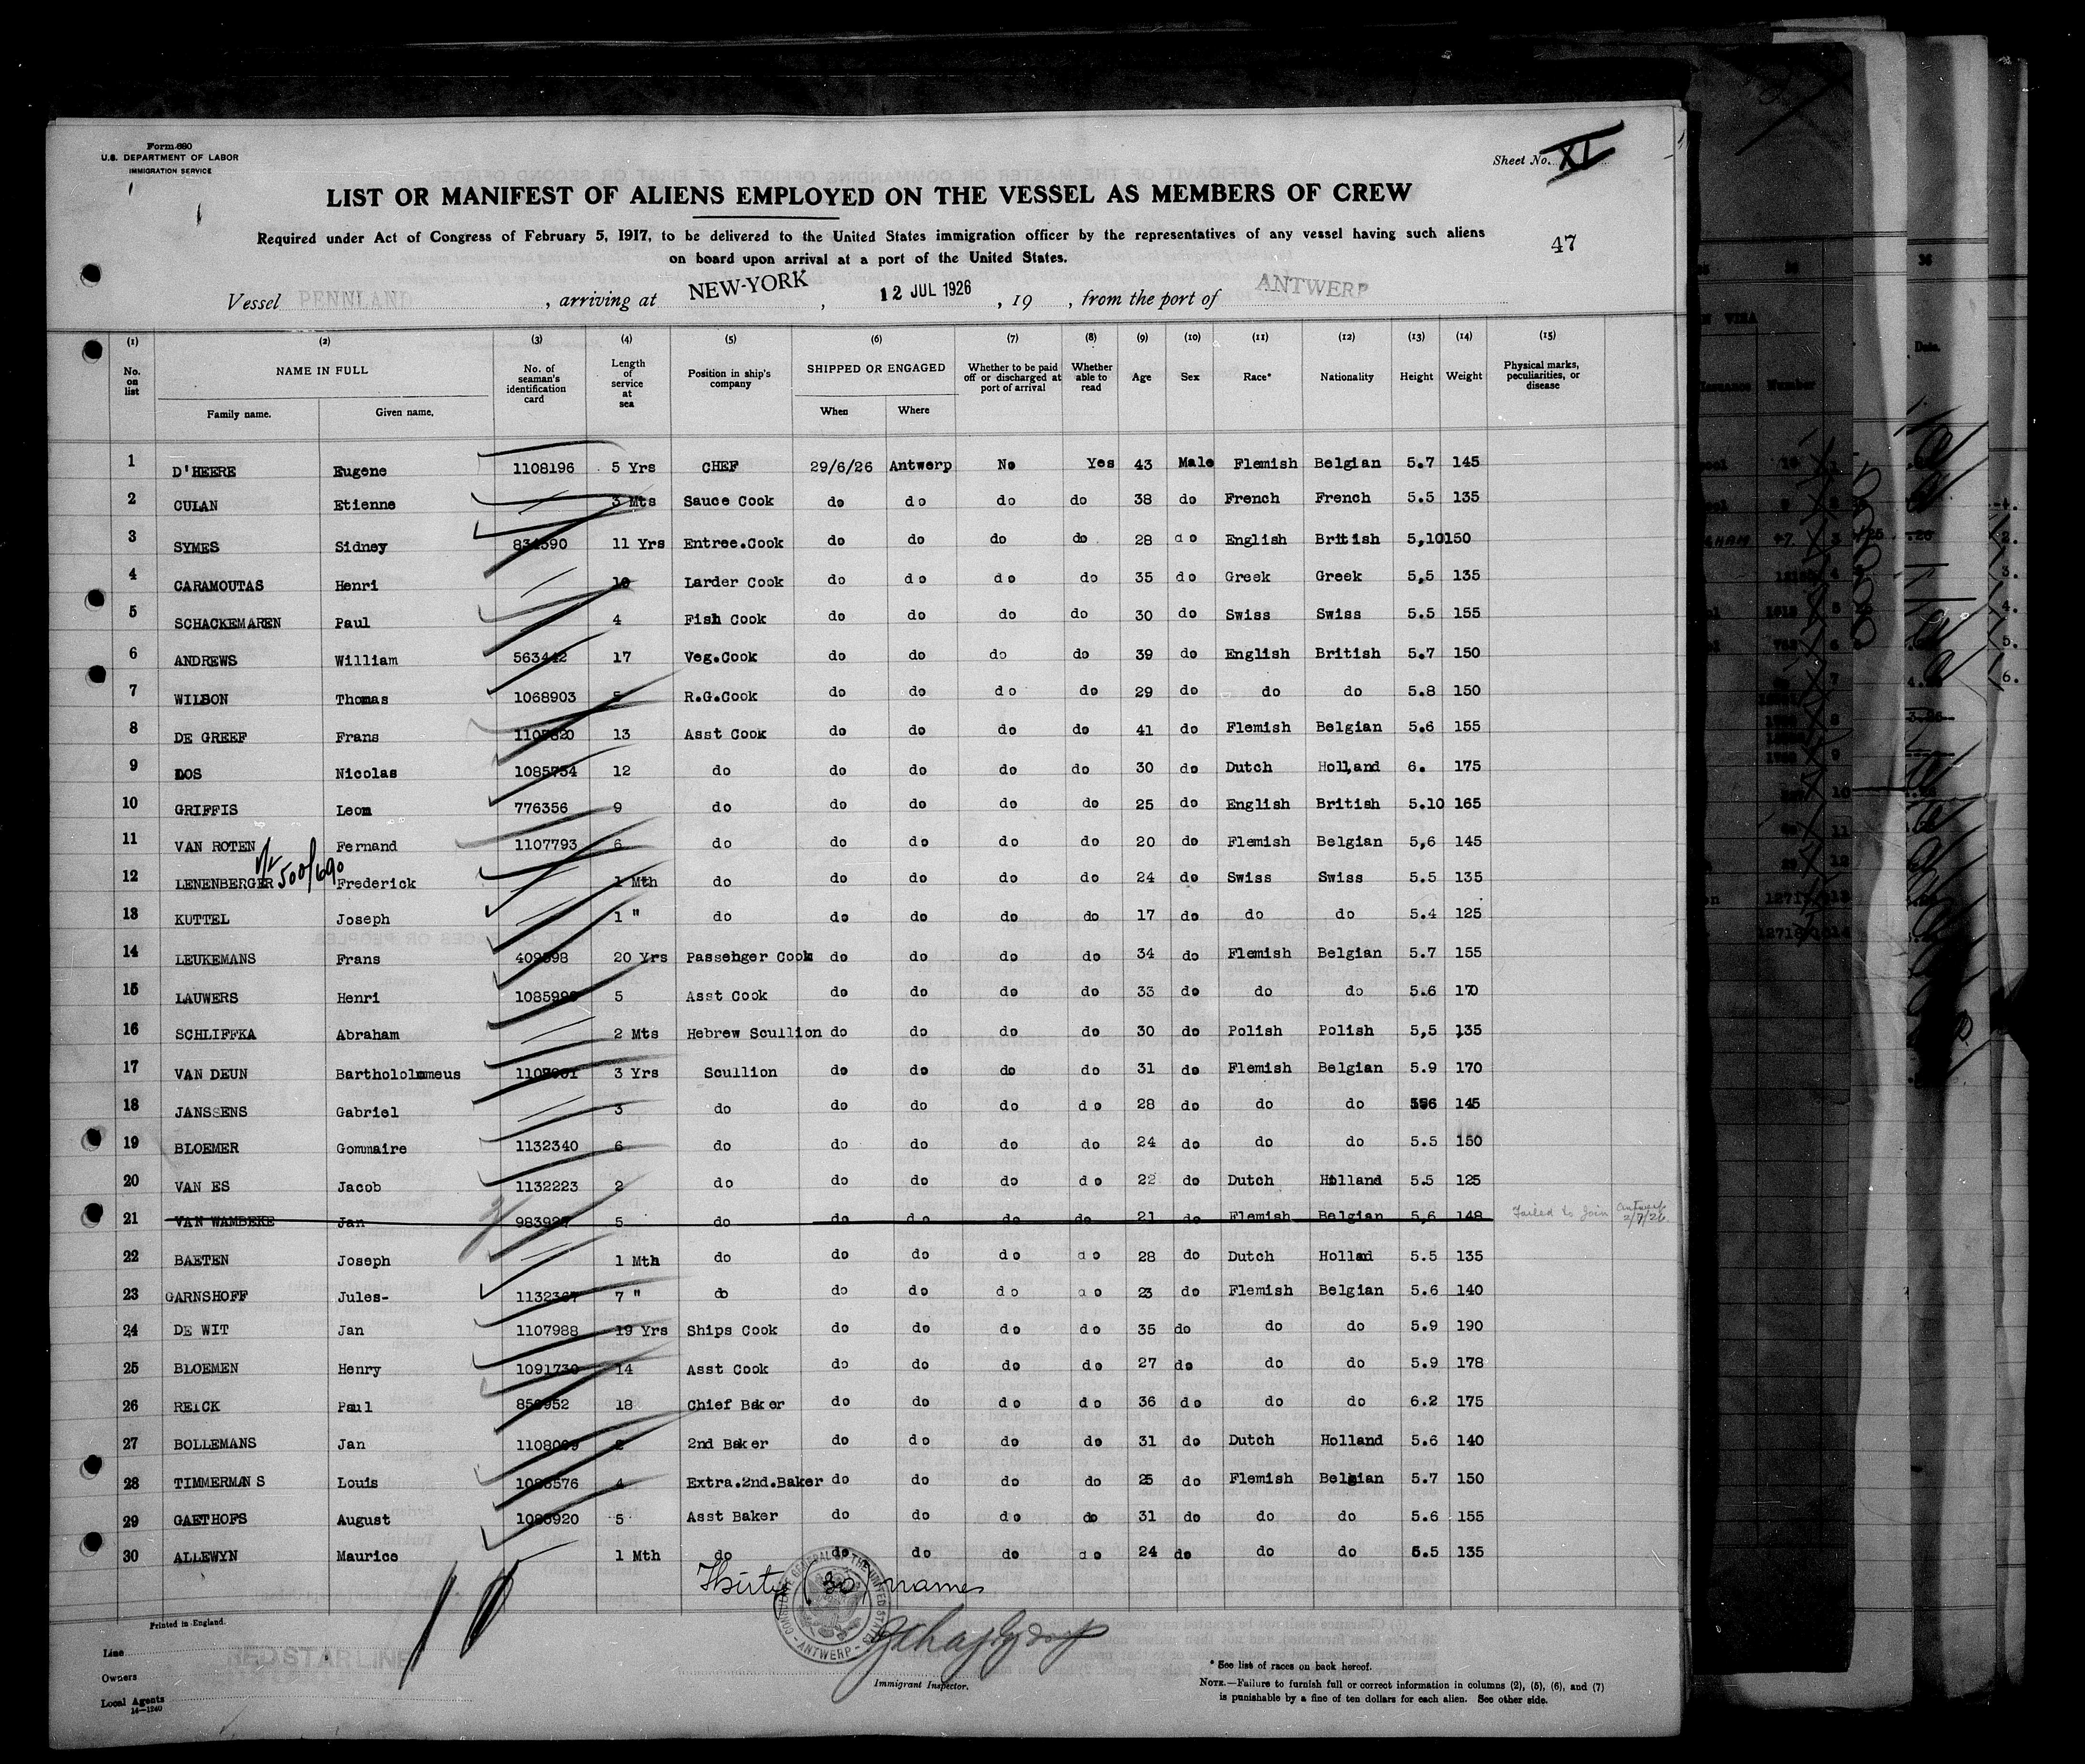 Form 680
U.S. DEPARTMENT OF LABOR
IMMIGRATION SERVICE
Sheet No. XI
LIST OR MANIFEST OF ALIENS EMPLOYED ON THE VESSEL AS MEMBERS OF CREW
Required under Act of Congress of February 5, 1917, to be delivered to the United States immigration officer by the representatives of any vessel having such aliens
on board upon arrival at a port of the United States.
47
Vessel PENNLAND, arriving at NEW-YORK, 12 JUL 1926, 19 , from the port of ANTWERP
(1) (2) (3) (4) (5) (6) (7) (8) (9) (10) (11) (12) (13) (14) (15)
No. on list NAME IN FULL Family name. Given name. No. of seaman's identification card Length of service at sea Position in ship's company SHIPPED OR ENGAGED When Where Whether to be paid off or discharged at port of arrival Whether able to read Age Sex Race* Nationality Height Weight Physical marks, peculiarities, or disease
1 D'HEERE Eugene 1108196 5 Yrs CHEF 29/6/26 Antwerp No Yes 43 Male Flemish Belgian 5.7 145
2 CULAN Etienne 3 Mts Sauce Cook do do do do 38 do French French 5.5 135
3 SYMES Sidney 11 Yrs Entree.Cook do do do do 28 do English British 5,10 150
4 CARAMOUTAS Henri 10 Larder Cook do do do do 35 do Greek Greek 5,5 135
5 SCHACKEMAREN Paul 4 Fish Cook do do do do 30 do Swiss Swiss 5.5 155
6 ANDREWS William 563442 17 Veg.Cook do do do do 39 do English British 5.7 150
7 WILSON Thomas 1068903 5 R.G.Cook do do do do 29 do do do 5.8 150
8 DE GREEF Frans 13 Asst Cook do do do do 41 do Flemish Belgian 5.6 155
9 DOS Nicolas 1085754 12 do do do do do 30 do Dutch Holland 6. 175
10 GRIFFIS Leon 776356 9 do do do do do 25 do English British 5.10 165
11 VAN ROTEN Fernand 1107793 6 do do do do do 20 do Flemish Belgian 5,6 145
12 LENENBERGER 500/690 Frederick 1 Mth do do do do do 24 do Swiss Swiss 5.5 135
13 KUTTEL Joseph 1 " do do do do do 17 do do do 5.4 125
14 LEUKEMANS Frans 20 Yrs Passenger Cook do do do do 34 do Flemish Belgian 5.7 155
15 LAUWERS Henri 5 Asst Cook do do do do 33 do do do 5.6 170
16 SCHLIFFKA Abraham 2 Mts Hebrew Scullion do do do do 30 do Polish Polish 5,5 135
17 VAN DEUN Barthololomeus 3 Yrs Scullion do do do do 31 do Flemish Belgian 5.9 170
18 JANSSENS Gabriel 3 do do do do do 28 do do do 145
19 BLOEMER Gommaire 1132340 6 do do do do do 24 do do do 5.5 150
20 VAN ES Jacob 1132223 2 do do do do do 22 do Dutch Holland 5.5 125
21 VAN WAMBEKE Jan 5 do do do do do 21 do Flemish Belgian 5,6 148 Failed to join Antwerp 2/7/26.
22 BAETEN Joseph 1 Mth do do do do do 28 do Dutch Holland 5.5 135
23 GARNSHOFF Jules- 1132367 7 " do do do do do 23 do Flemish Belgian 5.6 140
24 DE WIT Jan 1107988 19 Yrs Ships Cook do do do do 35 do do do 5.9 190
25 BLOEMEN Henry 1091730 14 Asst Cook do do do do 27 do do do 5.9 178
26 REICK Paul 18 Chief Baker do do do do 36 do do do 6.2 175
27 BOLLEMANS Jan 2 2nd Baker do do do do 31 do Dutch Holland 5.6 140
28 TIMMERMANS Louis 4 Extra.2nd.Baker do do do do 25 do Flemish Belgian 5.7 150
29 GAETHOFS August 5 Asst Baker do do do do 31 do do do 5.6 155
30 ALLEWYN Maurice 1 Mth do do do do do 24 do do do 5.5 135
Thirty (30) names
CONSULATE GENERAL OF THE UNITED STATES - ANTWERP -
Printed in England.
Line RED STAR LINE
Owners
Local Agents
14-1240
Immigrant Inspector.
* See list of races on back hereof.
NOTE.—Failure to furnish full or correct information in columns (2), (5), (6), and (7)
is punishable by a fine of ten dollars for each alien. See other side.